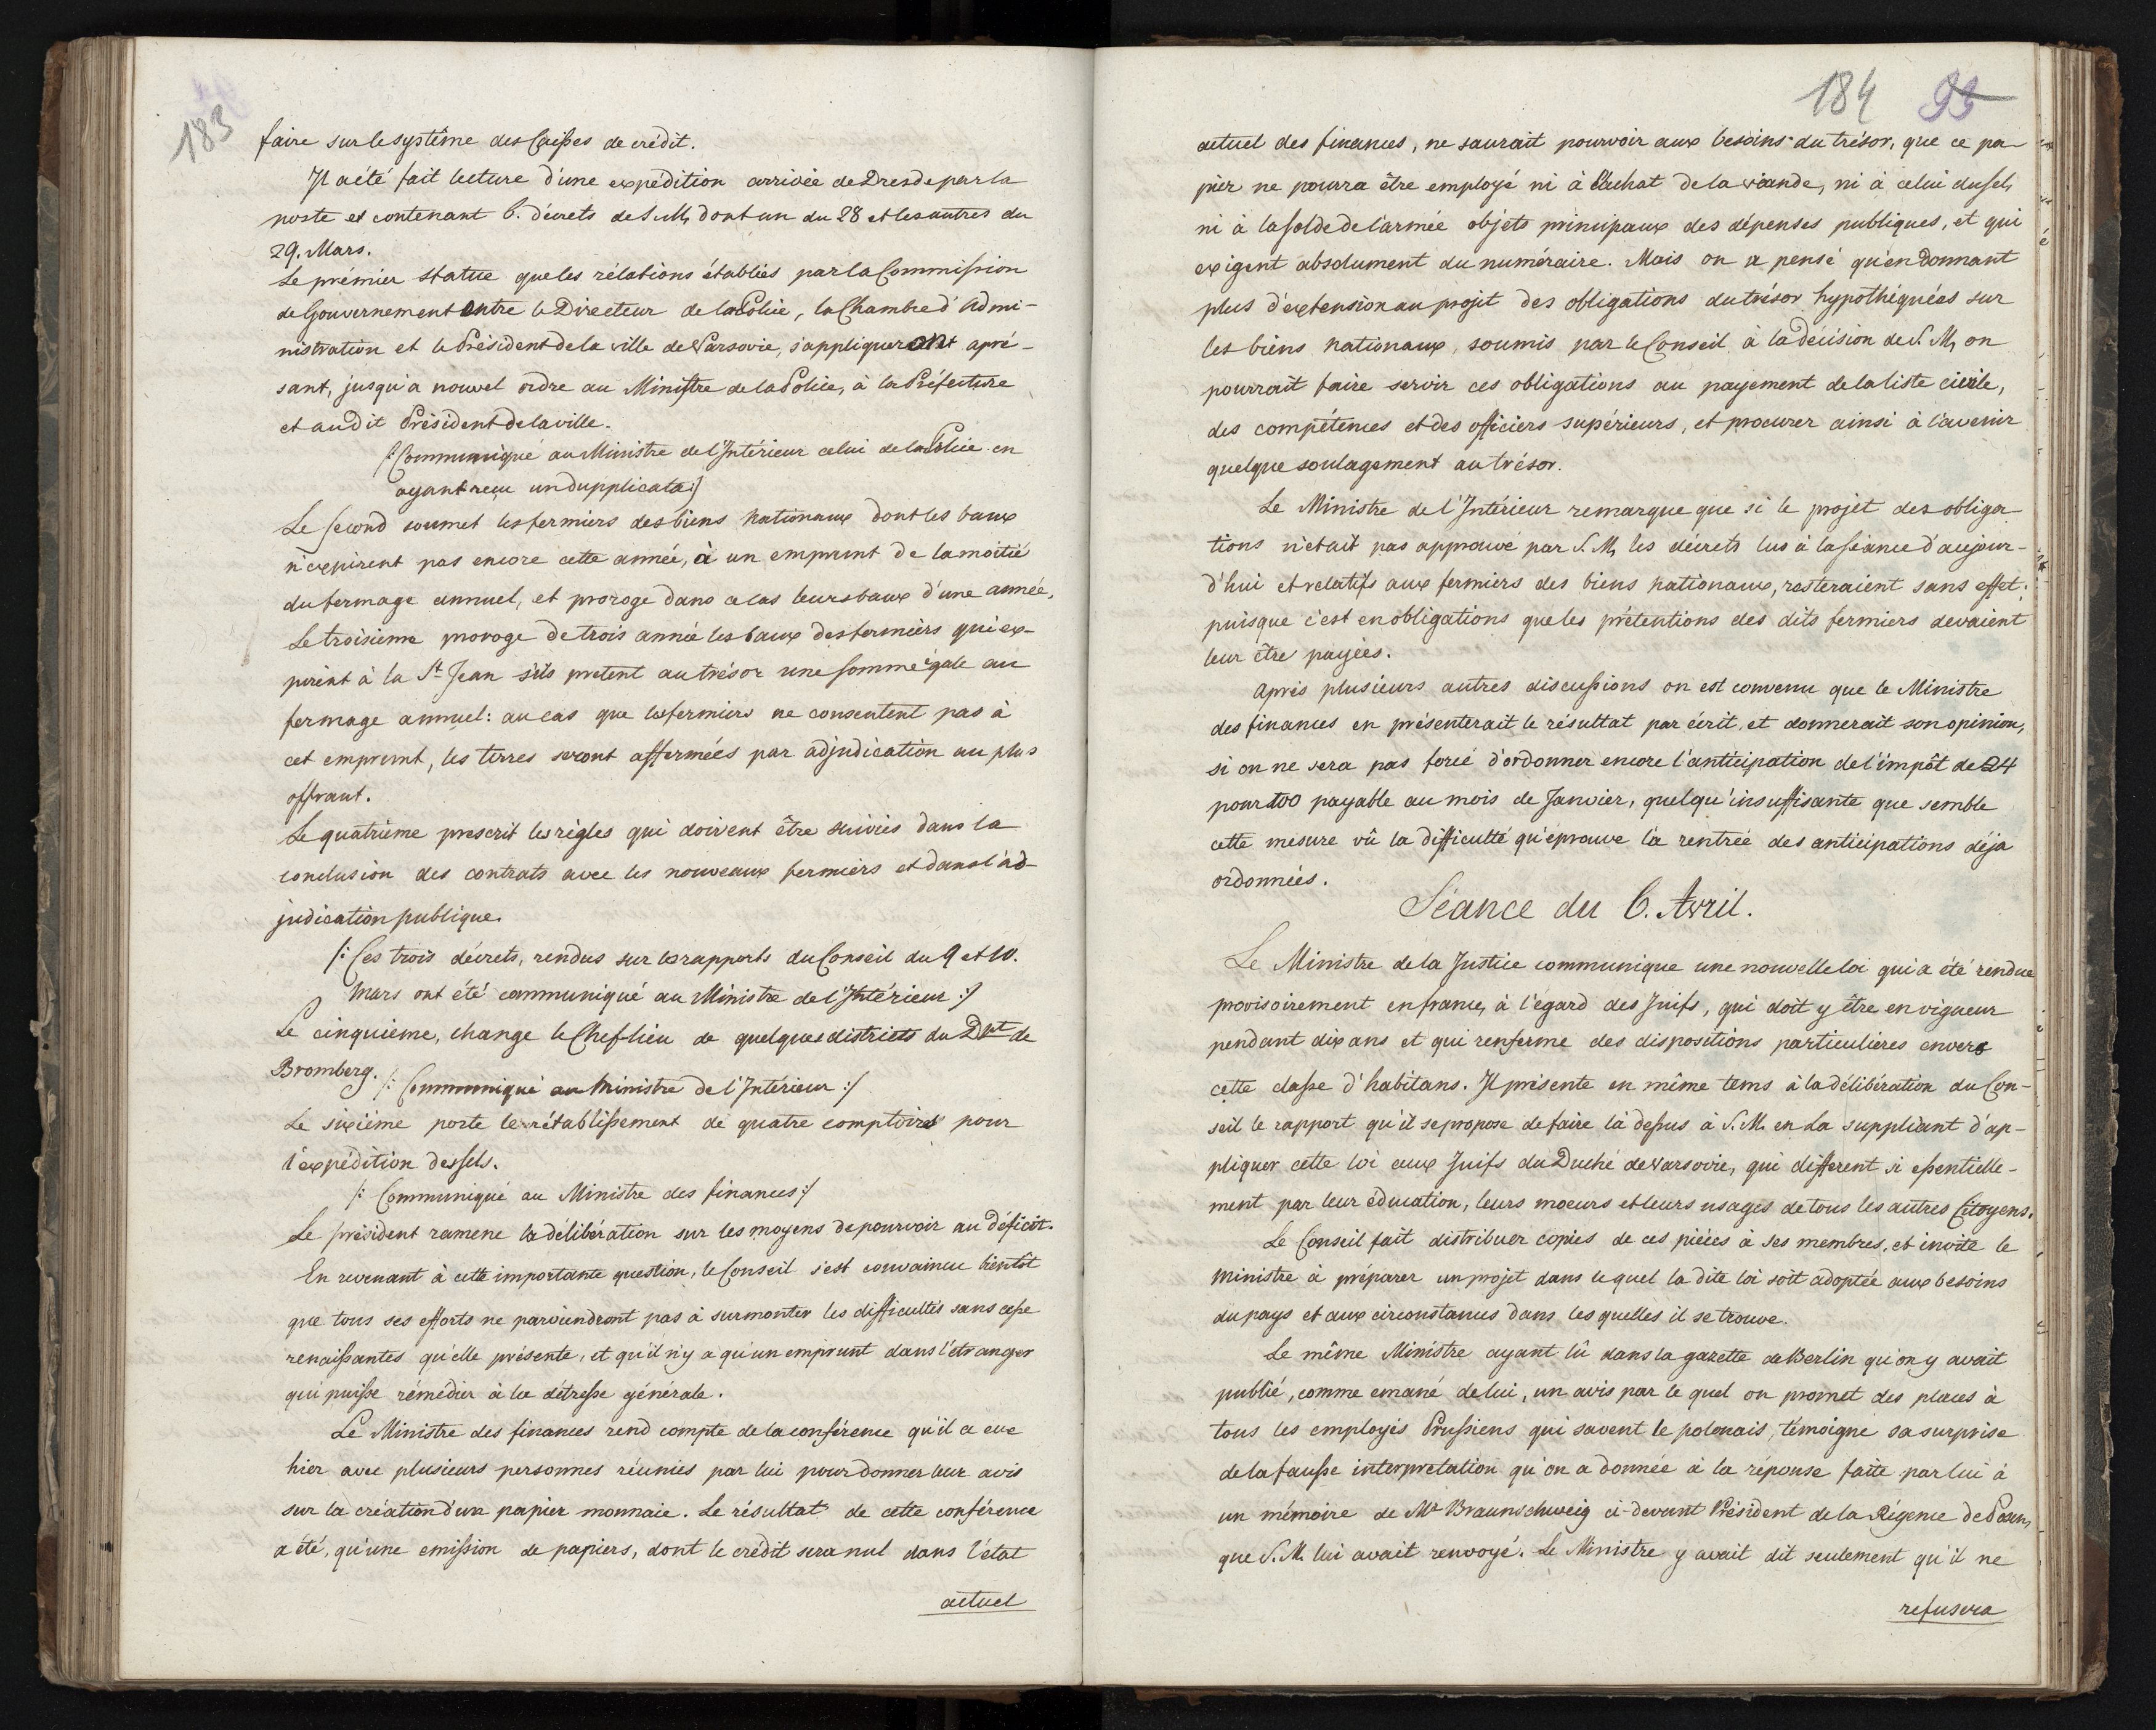 183
faire sur le système des Caisses de crédit.
Il a été fait lecture d'une expédition arrivée de Dresde par la
poste et contenant 6. décrets de S. M. dont un du 28 et les autres du
29. Mars.
Le prémier statue que les rélations établies par la Commission
de Gouvernement entre le Directeur de la Police, la Chambre d'Admi-
nistration et le Président de la ville de Varsovie, s'appliqueront apré-
sent, jusqu'a nouvel ordre au Ministre de la Police, à la Préfecture
et au dit Président de la ville.
/: Communiqué au Ministre de l'Intérieur celui de la Police en
ayant reçu un dupplicata :/
Le second soumet les fermiers des biens nationaux dont les baux
n'expirent pas encore cette année, à un emprunt de la moitié
du fermage annuel, et proroge dans ce cas leurs baux d'une année.
Le troisieme proroge de trois année les baux des fermiers qui ex-
pirent à la St. Jean s'ils pretent au trésor une somme égale au
fermage annuel: au cas que les fermiers ne consentent pas à
cet emprunt, les terres seront affermées par adjudication au plus
offrant.
Le quatrième prescrit les règles qui doivent être suivies dans la
conclusion des contrats avec les nouveaux fermiers et dans l'ad-
judication publique.
/: Ces trois décrets, rendus sur les rapports du Conseil du 9 et 10.
Mars ont été communiqué au Ministre de l'Intérieur :/
Le cinquième, change le Chef-lieu de quelques districts du Dpt de
Bromberg. /: Communiqué au Ministre de l'Intérieur :/
Le sixième porte le rétablissement de quatre comptoirs pour
l'expédition des sels.
/: Communiqué au Ministre des finances :/
Le président ramene la délibération sur les moyens de pourvoir au déficit.
En revenant à cette importante question, le Conseil s'est convaincu bientôt
que tous ses efforts ne parviendront pas à surmonter les difficultés sans cesse
renaissantes qu'elle présente, et qu'il n'y a qu'un emprunt dans l'étranger
qui puisse rémédier à la détresse générale.
Le Ministre des finances rend compte de la conférence qu'il a eue
hier avec plusieurs personnes réunies par lui pour donner leur avis
sur la création d'un papier monnaie. Le résultat de cette conférence
a été, qu'une emission de papiers, dont le crédit sera nul dans l'état
actuel
184 93
actuel des finances, ne saurait pourvoir aux besoins du trésor, que ce pa-
pier ne pourra être employé ni à l'achat de la viande, ni à celui du sel,
ni à la solde de l'armée objets principaux des dépenses publiques, et qui
exigent absolument du numéraire. Mais on a pensé qu'en donnant
plus d'extension au projet des obligations du trésor hypothéquées sur
les biens nationaux, soumis par le Conseil à la décision de S. M, on
pourrait faire servir ces obligations au payement de la liste civile,
des compétences et des officiers supérieurs, et procurer ainsi à l'avenir
quelque soulagement au trésor.
Le Ministre de l'Intérieur remarque que si le projet des obliga-
tions n'était pas approuvé par S. M, les décrets lus à la séance d'aujour-
d'hui et relatifs aux fermiers des biens nationaux, resteraient sans effet.
puisque c'est en obligations que les prétentions des dits fermiers devaient
leur être payées.
Après plusieurs autres discussions on est convenu que le Ministre
des finances en présenterait le résultat par écrit, et donnerait son opinion,
si on ne sera pas forcé d'ordonner encore l'anticipation de l'impôt de 24
pour 100 payable au mois de Janvier, quelqu'insuffisante que semble
cette mesure vû la difficulté qu'éprouve la rentrée des anticipations déja
ordonnées.
Séance du 6. Avril.
Le Ministre de la Justice communique une nouvelle loi qui a été rendue
provisoirement en france, à l'égard des Juifs, qui doit y être en vigueur
pendant dix ans et qui renferme des dispositions particulieres envers
cette classe d'habitans. Il présente en même tems à la délibération du Con-
seil le rapport qu'il se propose de faire là dessus à S. M. en La suppliant d'ap-
pliquer cette loi aux Juifs du Duché de Varsovie, qui different si essentielle-
ment par leur éducation, leurs moeurs et leurs usages de tous les autres Citoyens.
Le Conseil fait distribuer copies de ces pièces à ses membres, et invite le
Ministre à préparer un projet dans le quel la dite loi soit adoptée aux besoins
du pays et aux circonstances dans les quelles il se trouve.
Le même Ministre ayant lû dans la gazette de Berlin qu'on y avait
publié, comme emané de lui, un avis par le quel on promet des places à
tous les employés Prussiens qui savent le polonais, témoigne sa surprise
de la fausse interpretation qu'on a donnée à la réponse faite par lui à
un mémoire de Mr Braunschweig ci-devant Président de la Régence de Posen,
que S. M. lui avait renvoyé. Le Ministre y avait dit seulement qu'il ne
refusera